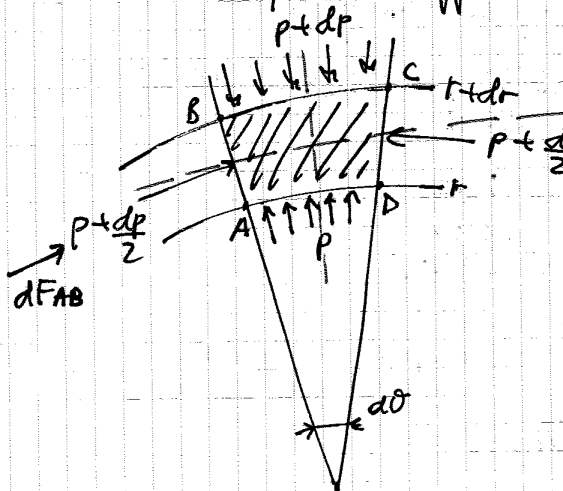 p+dp
B
C
r+dr
p+d
2
p+dp
2
A
D
r
p
dFAB
dθ